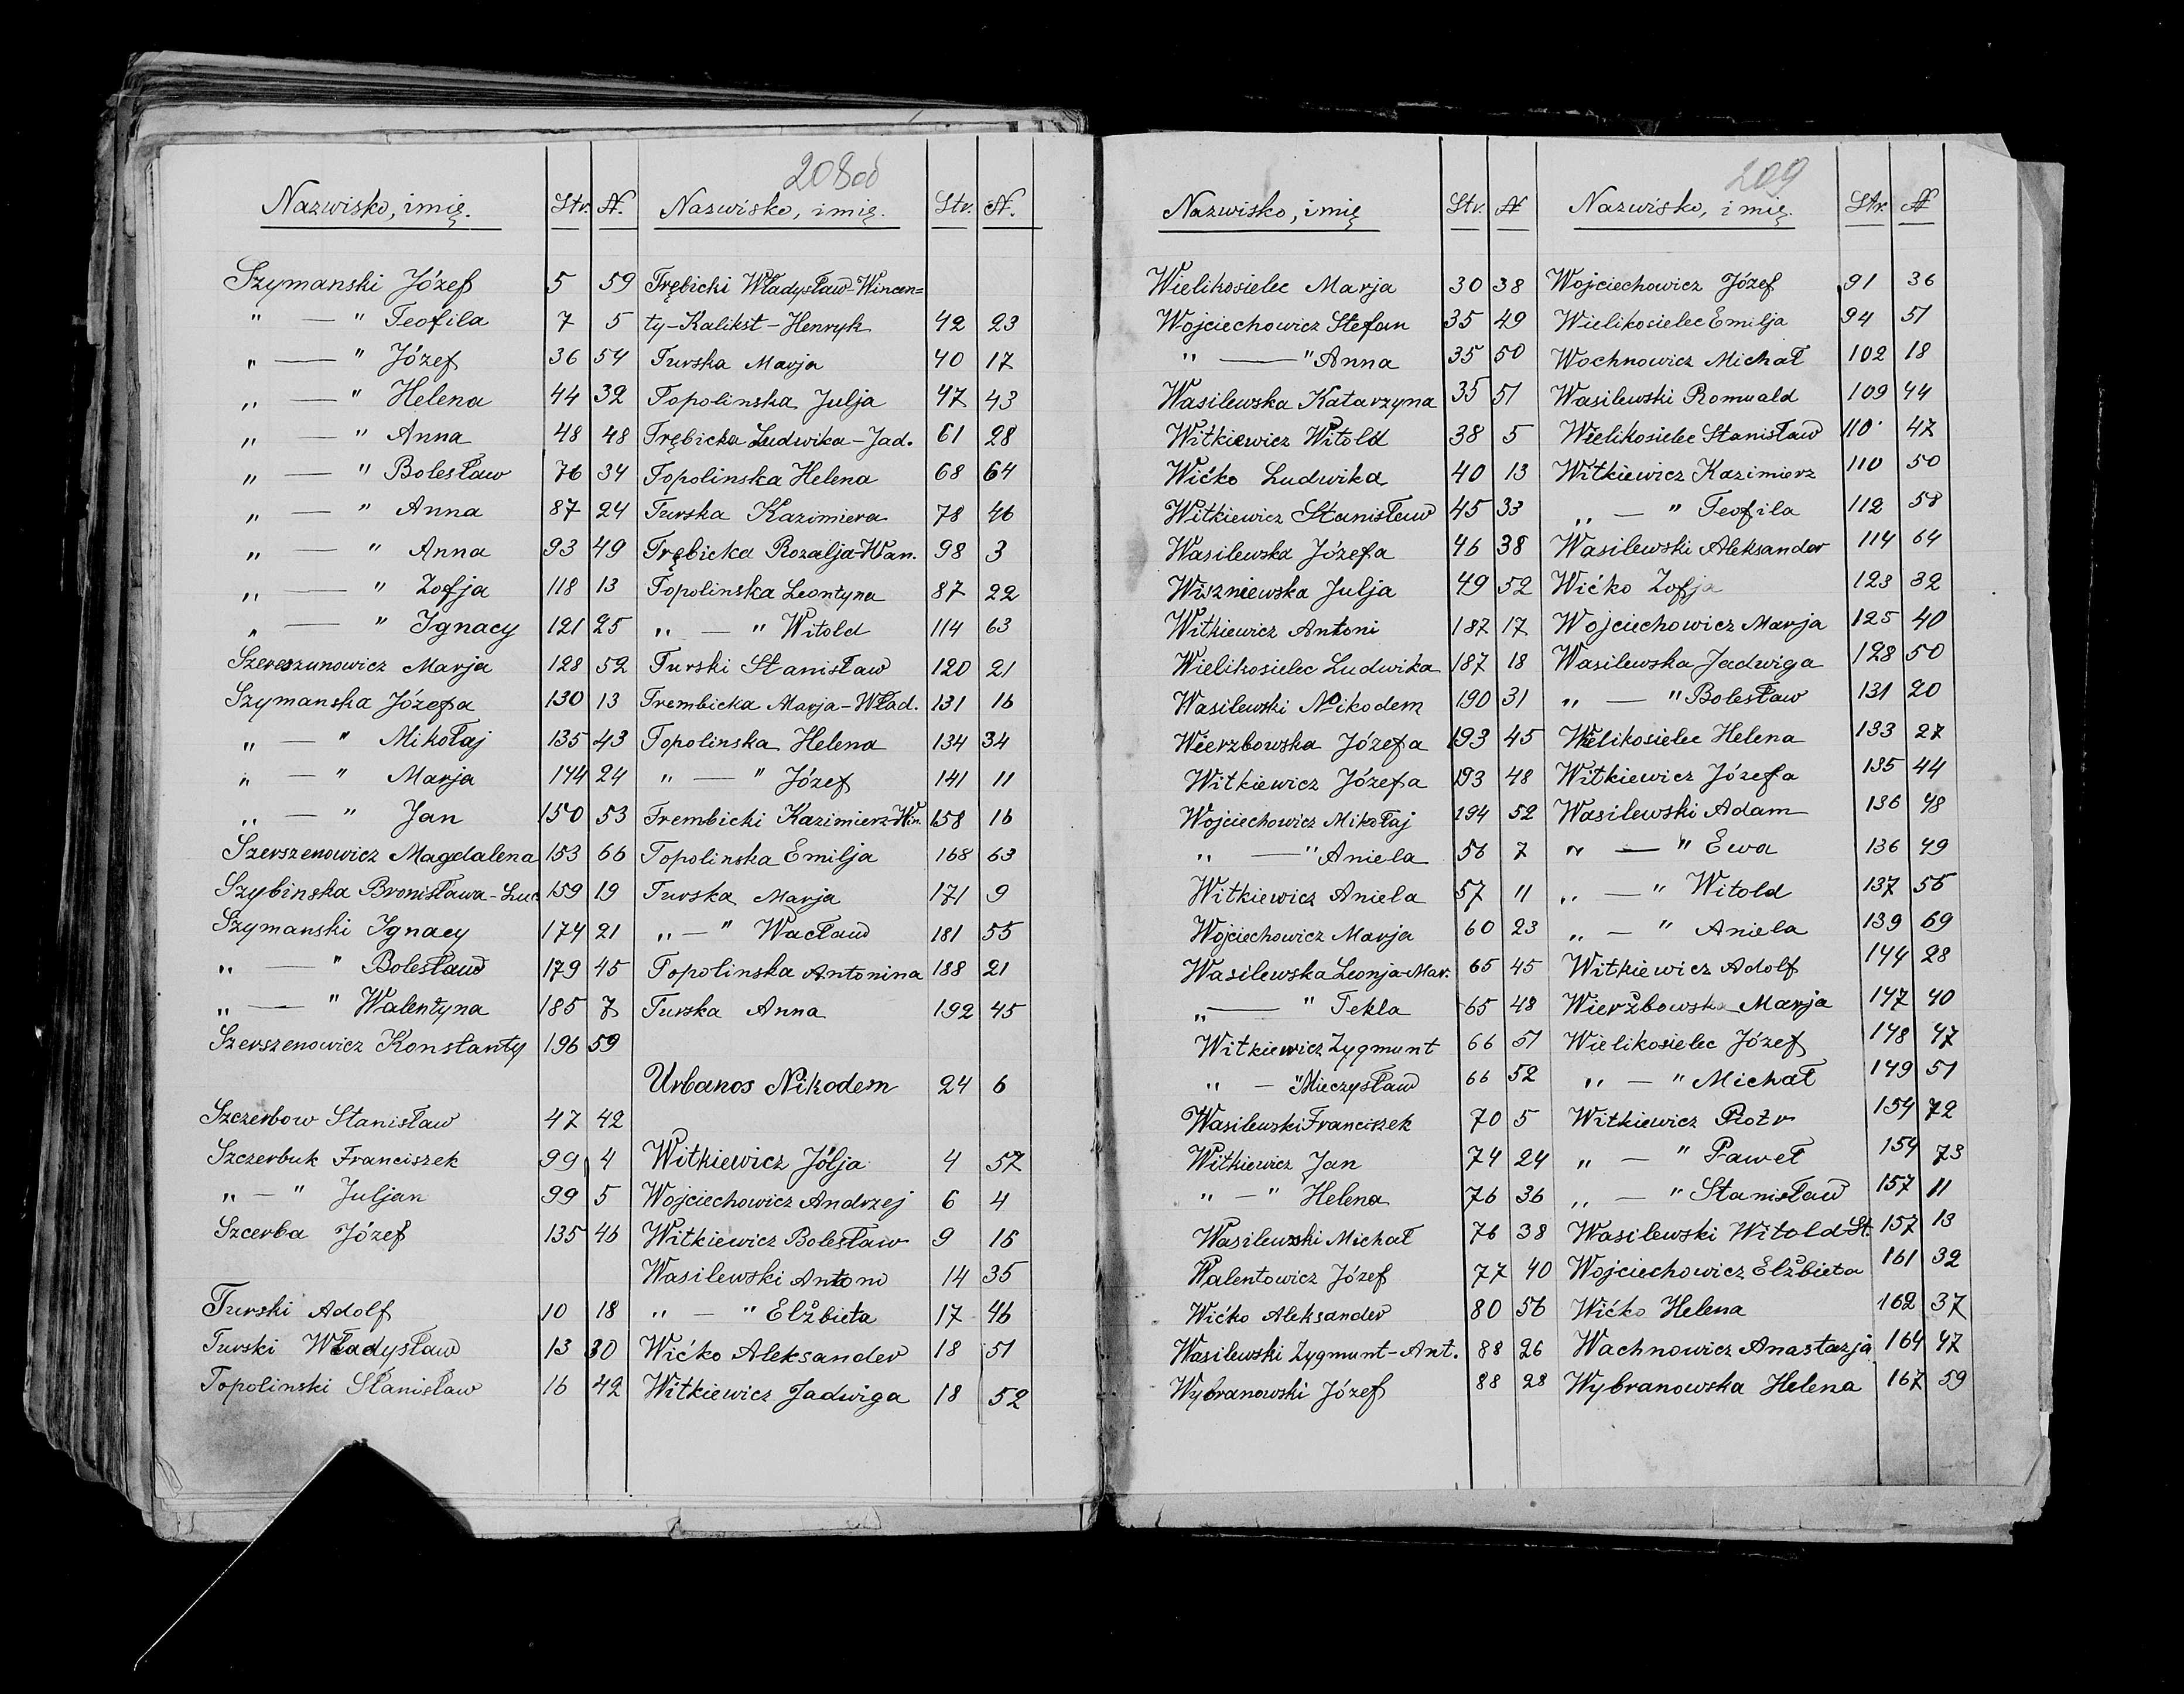 208 об
Nazwisko, imię. Str. N.
Szymanski Józef 5 59
" — " Teofila 7 5
" — " Józef 36 54
" — " Helena 44 32
" — " Anna 48 48
" — " Bolesław 76 34
" — " Anna 87 24
" — " Anna 93 49
" — " Zofja 118 13
" — " Ignacy 121 25
Szereszunowicz Marja 128 52
Szymanska Józefa 130 13
" — " Mikołaj 135 43
" — " Marja 144 24
" — " Jan 150 53
Szerszenowicz Magdalena 153 66
Szybinska Bronisława-Luc 159 19
Szymanski Ignacy 174 21
" — " Bolesław 179 45
" — " Walentyna 185 7
Szerszenowicz Konstanty 196 59
Szczerbow Stanisław 47 42
Szczerbuk Franciszek 99 4
" — " Juljan 99 5
Szcerba Józef 135 46
Turski Adolf 10 18
Turski Władysław 13 30
Topolinski Stanisław 16 42
Nazwisko, imię. Str. N.
Trębicki Władysław-Wincen=
ty-Kalikst-Henryk 42 23
Turska Marja 40 17
Topolinska Julja 47 43
Trębicka Ludwika-Jad. 61 28
Topolinska Helena 68 64
Turska Kazimiera 78 46
Trębicka Rozalja-Wan. 98 3
Topolinska Leontyna 87 22
" — " Witold 114 63
Turski Stanisław 120 21
Trembicka Marja-Wład. 131 16
Topolinska Helena 134 34
" — " Józef 141 11
Trembicki Kazimierz-Win. 158 16
Topolinska Emilja 168 63
Turska Marja 171 9
" — " Wacław 181 55
Topolinska Antonina 188 21
Turska Anna 192 45
Urbanos Nikodem 24 6
Witkiewicz Jólja 4 57
Wojciechowicz Andrzej 6 4
Witkiewicz Bolesław 9 16
Wasilewski Antoni 14 35
" — " Elżbieta 17 46
Wićko Aleksander 18 51
Witkiewicz Jadwiga 18 52
209
Nazwisko, imię Str. N
Wielikosielec Marja 30 38
Wojciechowicz Stefan 35 49
" — " Anna 35 50
Wasilewska Katarzyna 35 51
Witkiewicz Witold 38 5
Wićko Ludwika 40 13
Witkiewicz Stanisław 45 33
Wasilewska Józefa 46 38
Wiszniewska Julja 49 52
Witkiewicz Antoni 187 17
Wielikosielec Ludwika 187 18
Wasilewski Nikodem 190 31
Wierzbowska Józefa 193 45
Witkiewicz Józefa 193 48
Wojciechowicz Mikołaj 194 52
" — " Aniela 56 7
Witkiewicz Aniela 57 11
Wojciechowicz Marja 60 23
Wasilewska Leonja-Mar. 65 45
" — " Tekla 65 48
Witkiewicz Zygmunt 66 51
" — " Mieczysław 66 52
Wasilewski Franciszek 70 5
Witkiewicz Jan 74 24
" — " Helena 76 36
Wasilewski Michał 76 38
Walentowicz Józef 77 40
Wićko Aleksander 80 56
Wasilewski Zygmunt-Ant. 88 26
Wybranowski Józef 88 28
Nazwisko, imię. Str. N
Wojciechowicz Józef 91 36
Wielikosielec Emilja 94 51
Wochnowicz Michał 102 18
Wasilewski Romuald 109 44
Wielikosielec Stanisław 110 47
Witkiewicz Kazimierz 110 50
" — " Teofila 112 58
Wasilewski Aleksander 114 64
Wićko Zofja 123 32
Wojciechowicz Marja 125 40
Wasilewska Jadwiga 128 50
" — " Bolesław 131 20
Wielikosielec Helena 133 27
Witkiewicz Józefa 135 44
Wasilewski Adam 136 48
" — " Ewa 136 49
" — " Witold 137 55
" — " Aniela 139 69
Witkiewicz Adolf 144 28
Wierżbowska Marja 147 40
Wielikosielec Józef 148 47
" — " Michał 149 51
Witkiewicz Piotr 154 72
" — " Paweł 154 73
" — " Stanisław 157 11
Wasilewski Witold-St. 157 13
Wojciechowicz Elżbieta 161 32
Wićko Helena 162 37
Wachnowicz Anastazja 164 47
Wybranowska Helena 167 59